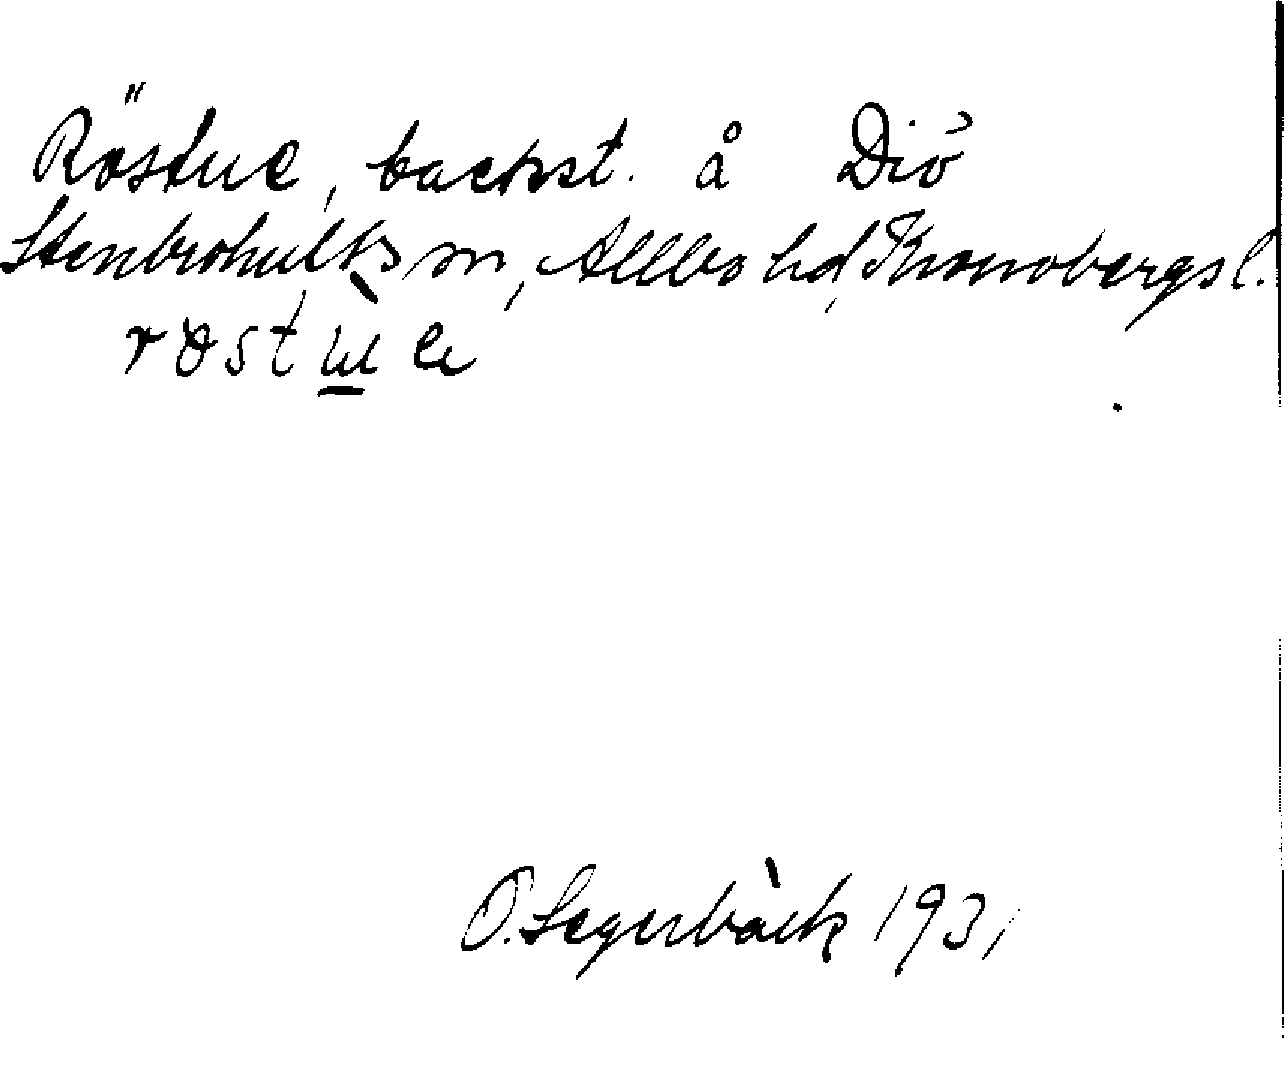 Röstue, backst. å Diö
Stenbrohults sn, Allbo hd, Kronobergs l.
O. Segerbäck 1931